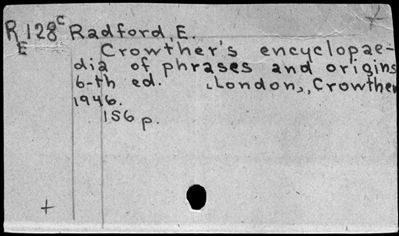 R128c Radford, E.
E
Crowther's encyclopae-
dia of phrases and origins
6-th ed. London, Crowther
1946.
156 p.